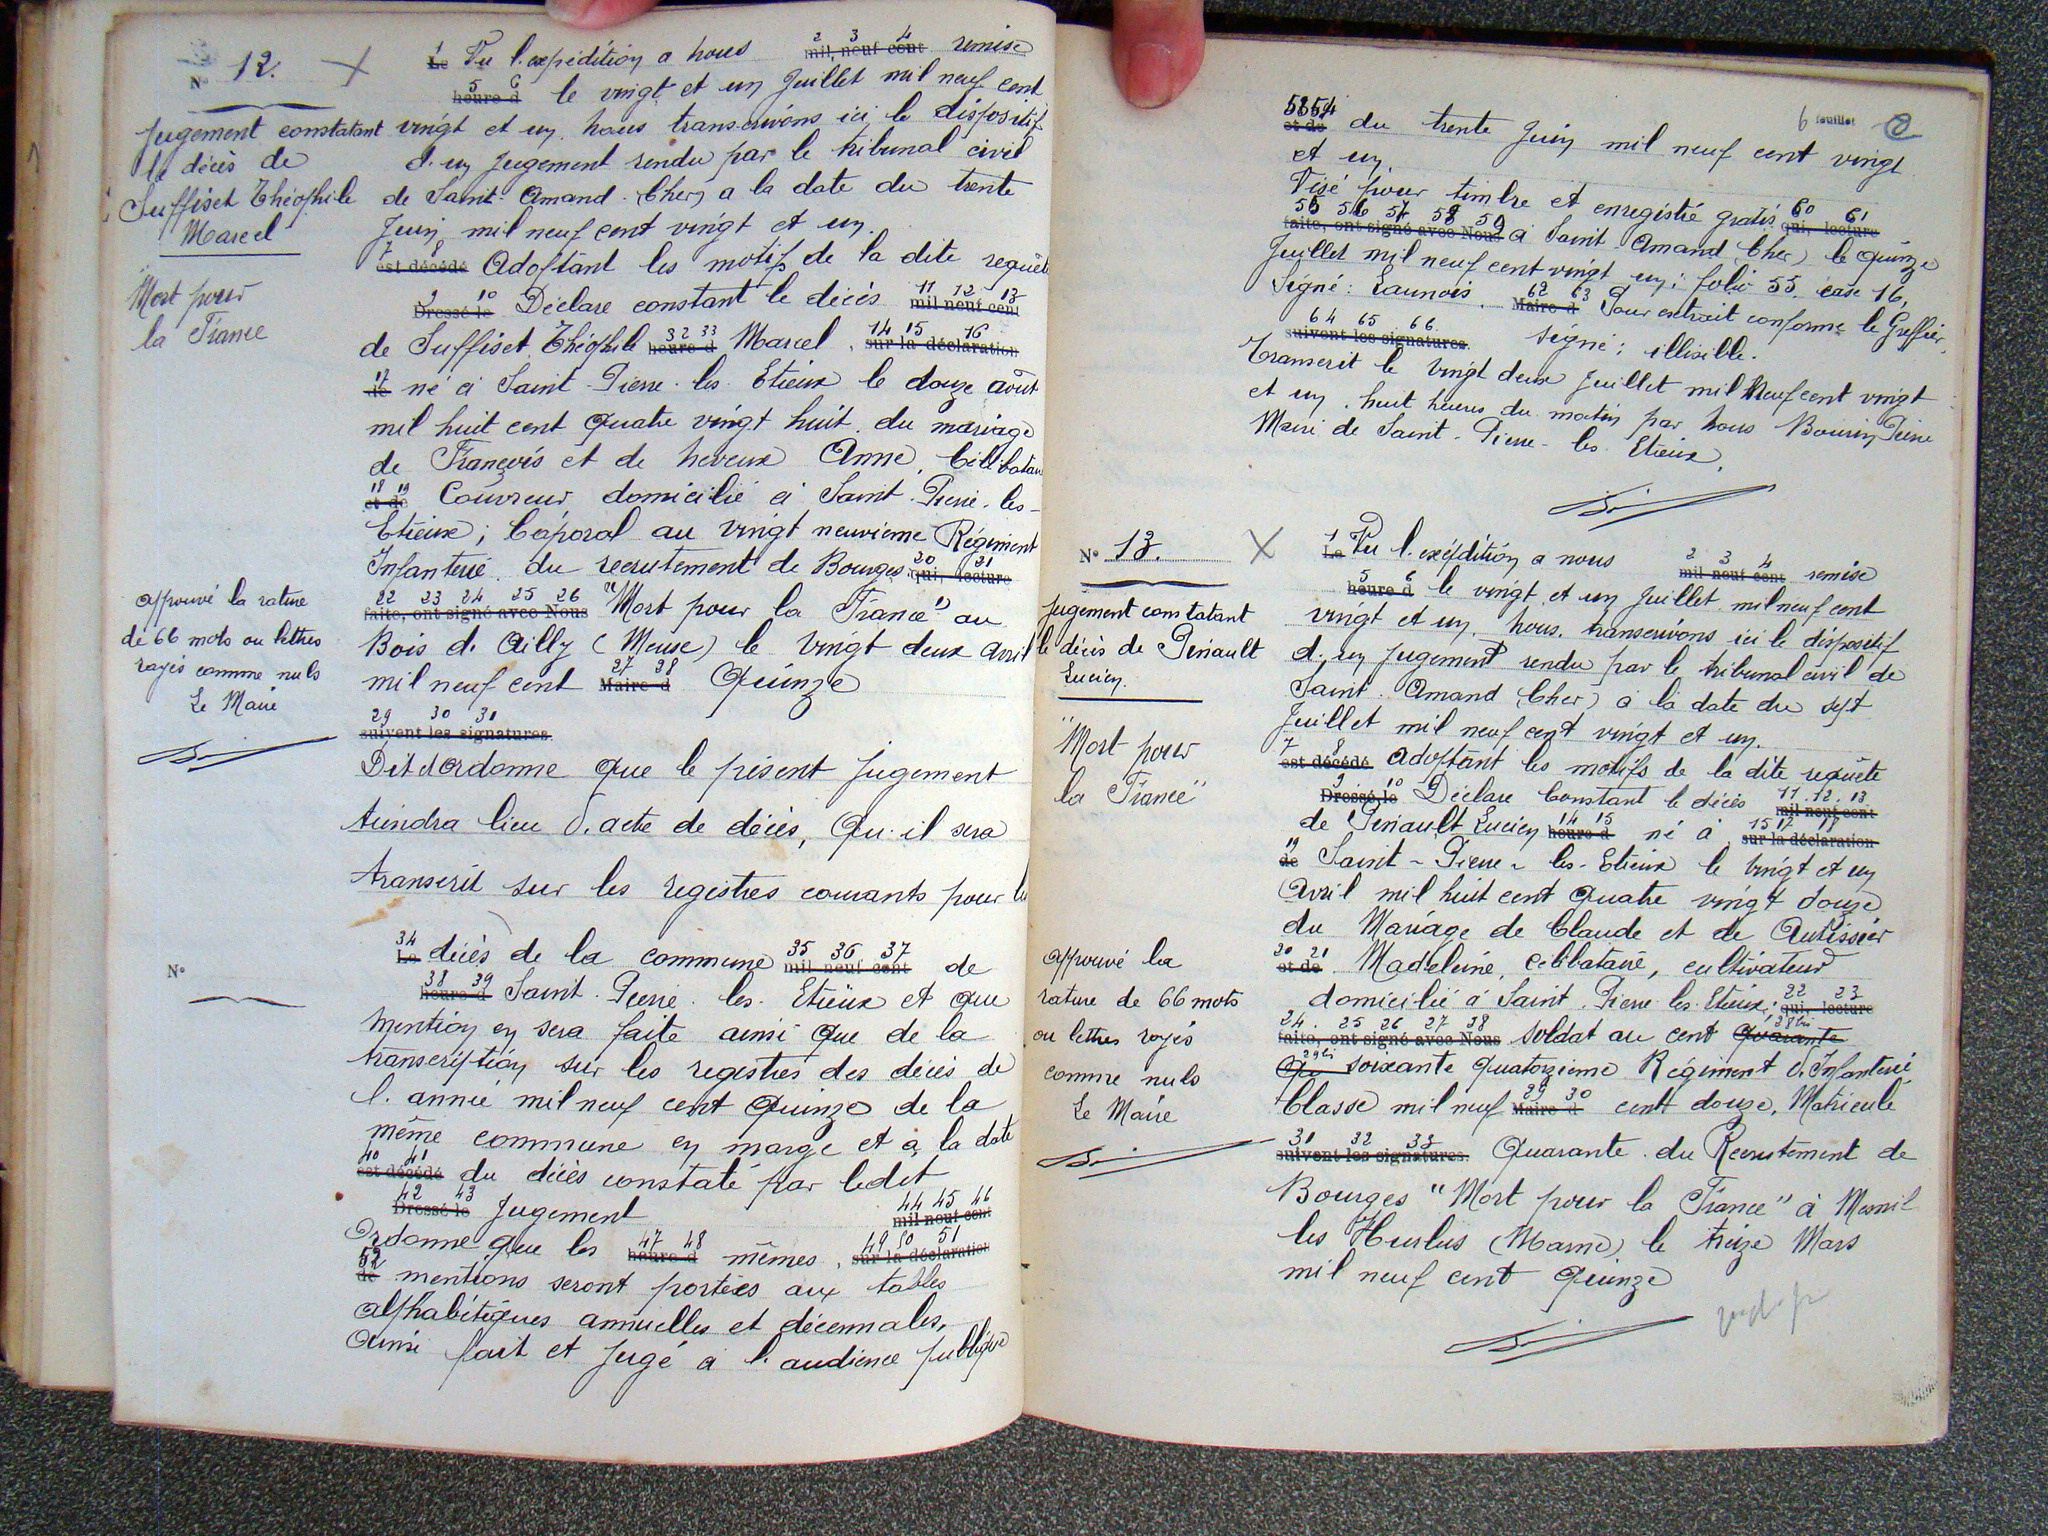 N° 12.
Jugement constatant
le décès de
Suffiset Théophile
Marcel
"Mort pour
la France
approuvé la rature
de 66 mots ou lettres
rayés comme nuls
Le Maire
N°
1 Le Vu l'expédition a nous 2 3 4 mil neuf cent remise
5 6 heure d le vingt et un Juillet mil neuf cent
vingt et un. nous transcrivons ici le dispositif
d'un jugement rendu par le tribunal civil
de Saint-Amand (Cher) a la date du trente
Juin mil neuf cent vingt et un.
7 8 est décédé Adoptant les motifs de la dite requête
9 10 Dressé le Déclare constant le décès 11 12 13 mil neuf cent
de Suffiset Théophile 32 33 heure d Marcel, 14 15 16 sur la déclaration
17 de né à Saint-Pierre-les-Etieux le douze août
mil huit cent quatre vingt huit. du mariage
de François et de neveux Anne, Célibataire
18 19 et de Couvreur domicilié à Saint-Pierre-les-
Etieux; Caporal au vingt neuvième Régiment
Infanterie. du recrutement de Bourges. 20 21 qui, lecture
22 23 24 25 26 faite, ont signé avec Nous "Mort pour la France" au
Bois d'Ailly (Meuse) le vingt deux avril
mil neuf cent 27 28 Maire d Quinze
29 30 31 suivent les signatures.
Dit et ordonne que le présent jugement
tiendra lieu d'acte de décès, qu'il sera
transcrit sur les registres courants pour les
34 Le décès de la commune 35 36 37 mil neuf cent de
38 39 heure d Saint-Pierre-les-Etieux et que
mention en sera faite ainsi que de la
transcription sur les registres des décès de
l'année mil neuf cent quinze de la
même commune en marge et à la date
40 41 est décédé du décès constaté par ledit
42 43 Dressé le Jugement 44 45 46 mil neuf cent
Ordonne que les 47 48 heure d mêmes, 49 50 51 sur la déclaration
52 de mentions seront portées aux tables
alphabétiques annuelles et décennales.
Ainsi fait et jugé à l'audience publique
6 feuillet
53 54 et de du trente Juin mil neuf cent vingt
et un.
Visé pour timbre et enregistré gratis 60 61 qui, lecture
55 56 57 58 59 faite, ont signé avec Nous à Saint Amand (Cher) le quinze
Juillet mil neuf cent vingt un: folio 55. case 16,
Signé: Launois. 62 63 Maire d Pour extrait conforme le Greffier,
64 65 66 suivent les signatures. signé: illisible.
Transcrit le vingt deux Juillet mil neuf cent vingt
et un. huit heures du matin par nous Bourin Pierre
Maire de Saint-Pierre-les-Etieux.
N° 13.
Jugement constatant
le décès de Pinault
Lucien.
"Mort pour
la France"
approuvé la
rature de 66 mots
ou lettres rayés
comme nuls
Le Maire
1 Le Vu l'expédition a nous 2 3 4 mil neuf cent remise
5 6 heure d le vingt et un Juillet mil neuf cent
vingt et un, nous transcrivons ici le dispositif
d'un jugement rendu par le tribunal civil de
Saint Amand (Cher) à la date du sept
Juillet mil neuf cent vingt et un.
7 8 est décédé adoptant les motifs de la dite requête
9 10 Dressé le Déclare Constant le décès 11 12 13 mil neuf cent
de Pinault Lucien 14 15 heure d né à 15 17 18 sur la déclaration
19 de Saint-Pierre-les-Etieux le vingt et un
avril mil huit cent quatre vingt douze
du Mariage de Claude et de Autissier
20 21 et de Madeleine, célibataire, cultivateur
domicilié à Saint-Pierre-les-Etieux; 22 23 qui, lecture
24 25 26 27 28 faite, ont signé avec Nous soldat au cent 28 bis quarante
29 bis soixante quatorzième Régiment d'Infanterie
Classe mil neuf 29 30 Maire d cent douze, Matricule
31 32 33 suivent les signatures. Quarante du Recrutement de
Bourges "Mort pour la France" à Mesnil
les Hurlus (Marne) le treize Mars
mil neuf cent quinze